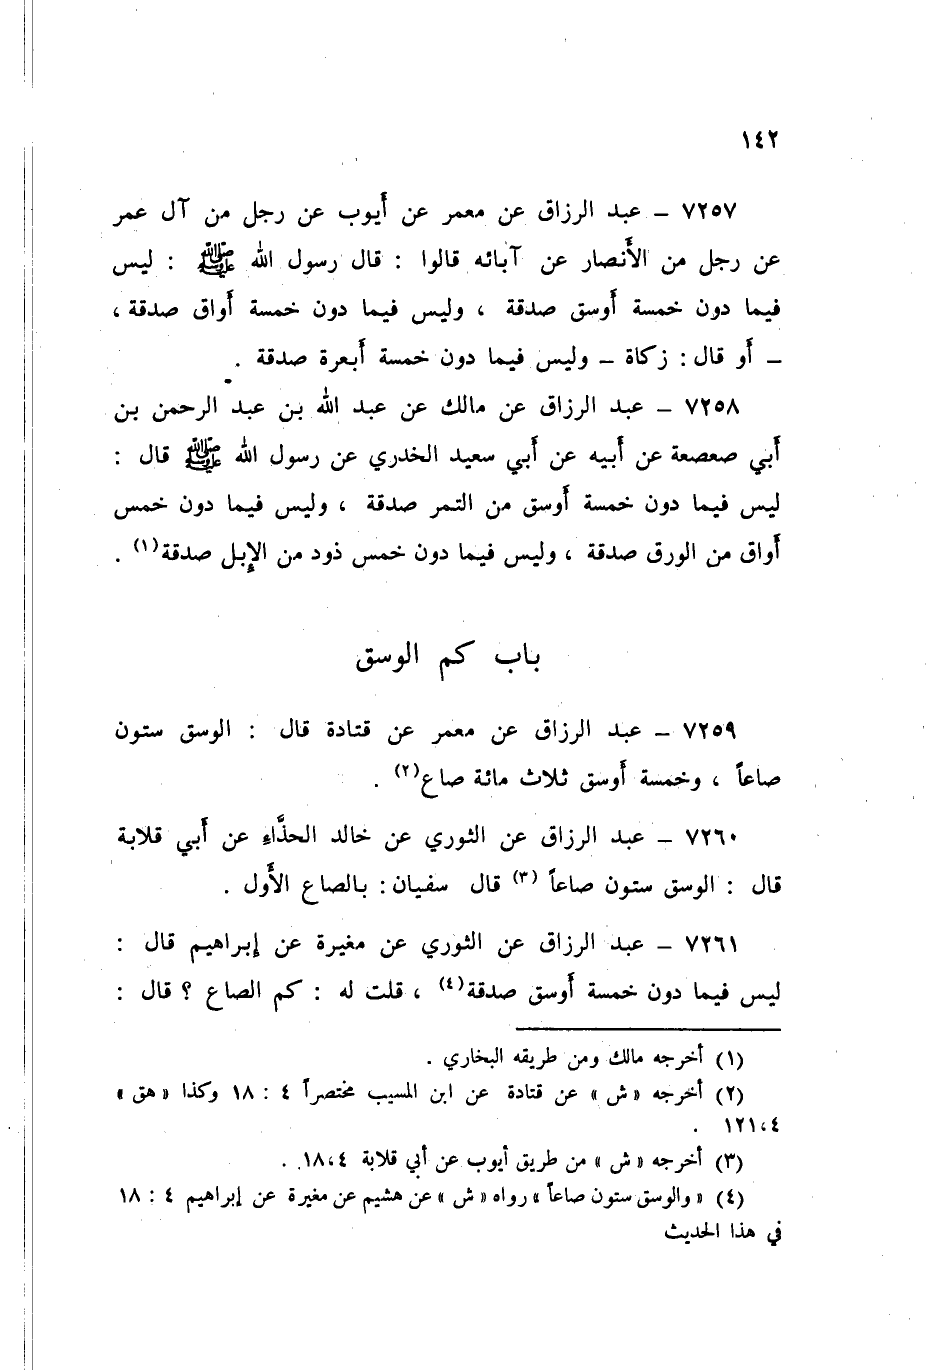 ١٤٢
٧٢٥٧ – عبد الرزاق عن معمر عن أَيوب عن رجل من آل عمر
عن رجل من الأَنصار عن آبائه قالوا : قال رسول الله ﷺ : ليس
فيما دون خمسة أَوسق صدقة ، وليس فيما دون خمسة أَواق صدقة ،
– أَو قال : زكاة – وليس فيما دون خمسة أَبعرة صدقة .
٧٢٥٨ – عبد الرزاق عن مالك عن عبد الله بن عبد الرحمن بن
أَبي صعصعة عن أَبيه عن أَبي سعيد الخدري عن رسول الله ﷺ قال :
ليس فيما دون خمسة أَوسق من التمر صدقة ، وليس فيما دون خمس
أَواق من الورق صدقة ، وليس فيما دون خمس ذود من الإِبل صدقة(١) .
باب كم الوسق
٧٢٥٩ – عبد الرزاق عن معمر عن قتادة قال : الوسق ستون
صاعاً ، وخمسة أَوسق ثلاث مائة صاع(٢) .
٧٢٦٠ – عبد الرزاق عن الثوري عن خالد الحذَّاءِ عن أَبي قلابة
قال : الوسق ستون صاعاً (٣) قال سفيان : بالصاع الأَول .
٧٢٦١ – عبد الرزاق عن الثوري عن مغيرة عن إِبراهيم قال :
ليس فيما دون خمسة أَوسق صدقة(٤) ، قلت له : كم الصاع ؟ قال :
(١) أخرجه مالك ومن طريقه البخاري .
(٢) أخرجه «ش» عن قتادة عن ابن المسيب مختصراً ٤ : ١٨ وكذا «هق»
٤،١٢١ .
(٣) أخرجه «ش» من طريق أيوب عن أبي قلابة ٤،١٨ .
(٤) «والوسق ستون صاعاً» رواه «ش» عن هشيم عن مغيرة عن إبراهيم ٤ : ١٨
في هذا الحديث